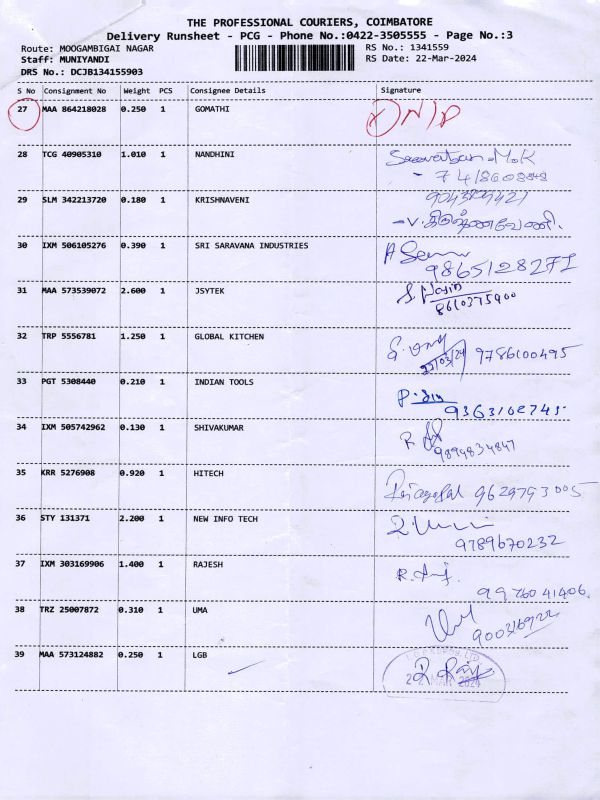 THE PROFESSIONAL COURIERS, COIMBATORE
Delivery Runsheet - PCG - Phone No.:0422-3505555 - Page No.:3
Route: MOOGAMBIGAI NAGAR RS No.: 1341559
Staff: MUNIYANDI RS Date: 22-Mar-2024
DRS No.: DCJB134155903
S No Consignment No Weight PCS Consignee Details Signature
27 MAA 864218028 0.250 1 GOMATHI N/D
28 TCG 40905310 1.010 1 NANDHINI
29 SLM 342213720 0.180 1 KRISHNAVENI
-V.கிருஷ்ணவேணி.
30 IXM 506105276 0.390 1 SRI SARAVANA INDUSTRIES
9865128271
31 MAA 573539072 2.600 1 JSYTEK
8610375900
32 TRP 5556781 1.250 1 GLOBAL KITCHEN
22/03/24 9786100495
33 PGT 5308440 0.210 1 INDIAN TOOLS
9363102745
34 IXM 505742962 0.130 1 SHIVAKUMAR
9894834847
35 KRR 5276908 0.920 1 HITECH Rajagopal 9629793005
36 STY 131371 2.200 1 NEW INFO TECH
9789670232
37 IXM 303169906 1.400 1 RAJESH
9976041406
38 TRZ 25007872 0.310 1 UMA
39 MAA 573124882 0.250 1 LGB
22 MAR 2024